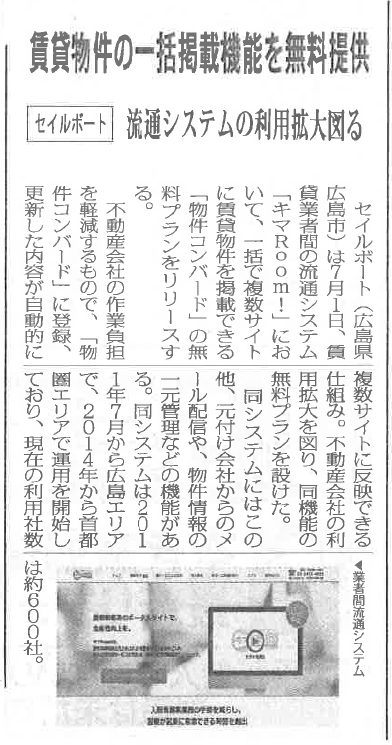 賃貸物件の一括掲載機能を無料提供
セイルポート
流通システムの利用拡大図る
セイルポート(広島県
広島市)は7月1日、賃
貸業者間の流通システム
「キマRoom!」にお
いて、一括で複数サイト
に賃貸物件を掲載できる
「物件コンバード」の無
料プランをリリースす
る。
不動産会社の作業負担
を軽減するもので、「物
件コンバード」に登録、
更新した内容が自動的に
複数サイトに反映できる
仕組み。不動産会社の利
用拡大を図り、同機能の
無料プランを設けた。
同システムにはこの
他、元付け会社からのメ
ール配信や、物件情報の
一元管理などの機能があ
る。同システムは201
1年7月から広島エリア
で、2014年から首都
圏エリアで運用を開始し
ており、現在の利用社数
は約600社。
◀業者間流通システム
入居者募集業務の手間を減らし、